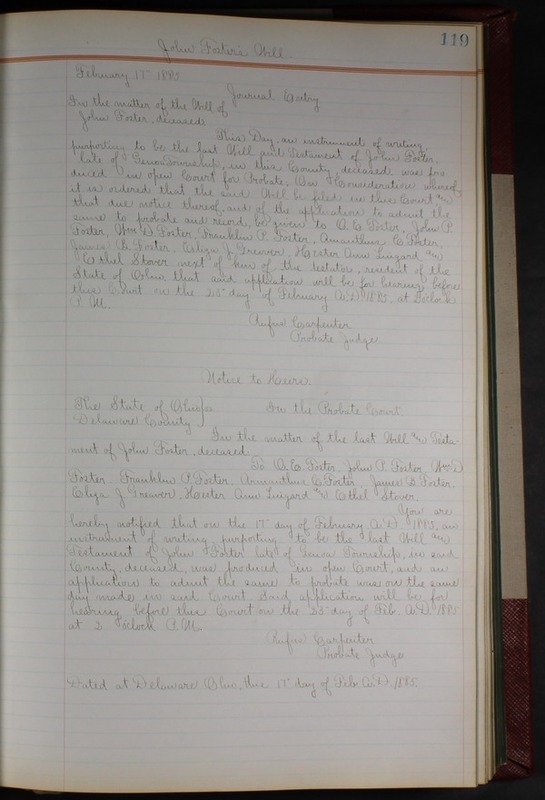 119
John Foster's Will.
February 17" 1885
Journal Entry
In the matter of the Will of
John Foster, deceased
This Day, an instrument of writing,
purporting to be the last Will and Testament of John Foster,
late of Genoa Township, in this County, deceased, was pro
duced in open Court for Probate. On Consideration whereof
it is ordered that the said Will be filed in this Court and
that due notice thereof, and of the application to admit the
same to probate and record, be given to A. E. Foster, John P.
Foster, Wm D. Foster, Franklin P. Foster, Amanthus C Foster,
James B. Foster, Eliza J. Greaver, Hester Ann Lingard and
Ethel Stover next of kin of the testator, resident of the
State of Ohio that said application will be for hearing before
this Court on the 23" day of February A.D. 1885, at 2 oclock
P. M.
Rufus Carpenter
Probate Judge
Notice to Heirs.
The State of Ohio
Delaware County
In the Probate Court.
In the matter of the last Will and Testa-
ment of John Foster, deceased
To A. E. Foster, John P. Foster, Wm D
Foster, Franklin P. Foster, Amanthus C Foster, James B. Foster,
Eliza J. Greaver, Hester Ann Lingard and Ethel Stover.
You are
hereby notified that on the 17" day of February A.D. 1885, an
instrument of writing, purporting to be the last Will and
Testament of John Foster late of Genoa Township, in said
County, deceased, was produced in open Court, and an
application to admit the same to probate was on the same
day made in said Court. Said application will be for
hearing before this Court on the 23" day of Feb. A.D. 1885
at 2 oclock P. M.
Rufus Carpenter
Probate Judge
Dated at Delaware Ohio, this 17" day of Feb A.D. 1885.